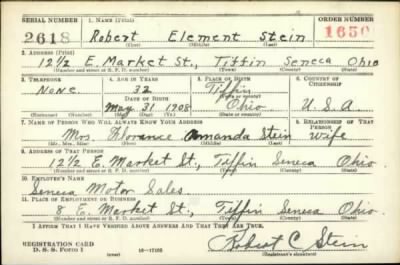 SERIAL NUMBER 1. NAME (Print) ORDER NUMBER
2618 Robert Element Stein 1650
(First) (Middle) (Last)
2. ADDRESS (Print)
12½ E. Market St., Tiffin Seneca Ohio
(Number and street or R. F. D. number) (Town) (County) (State)
3. TELEPHONE 4. AGE IN YEARS 5. PLACE OF BIRTH 6. COUNTRY OF CITIZENSHIP
None 32 Tiffin
DATE OF BIRTH (Town or county)
May 31 1908 Ohio U.S.A
(Exchange) (Number) (Mo.) (Day) (Yr.) (State or country)
7. NAME OF PERSON WHO WILL ALWAYS KNOW YOUR ADDRESS 8. RELATIONSHIP OF THAT PERSON
Mrs. Florance Amanda Stein Wife
(Mr., Mrs., Miss) (First) (Middle) (Last)
9. ADDRESS OF THAT PERSON
12½ E. Market St., Tiffin Seneca Ohio.
(Number and street or R. F. D. number) (Town) (County) (State)
10. EMPLOYER'S NAME
Seneca Motor Sales
11. PLACE OF EMPLOYMENT OR BUSINESS
8 E. Market St., Tiffin Seneca Ohio.
(Number and street or R. F. D. number) (Town) (County) (State)
I AFFIRM THAT I HAVE VERIFIED ABOVE ANSWERS AND THAT THEY ARE TRUE.
REGISTRATION CARD
D. S. S. FORM 1 (over) Robert C Stein